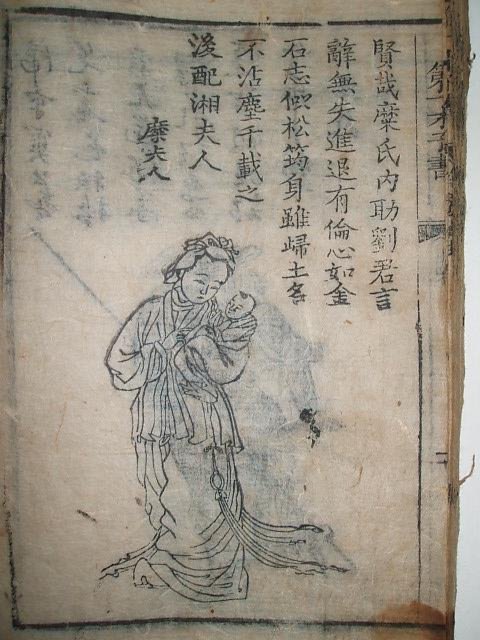 賢哉糜氏內助劉君言
辭無失進退有倫心如金
石志似松筠身雖歸土名
不沾塵千載之
後配湘夫人
糜夫人
第一才子書